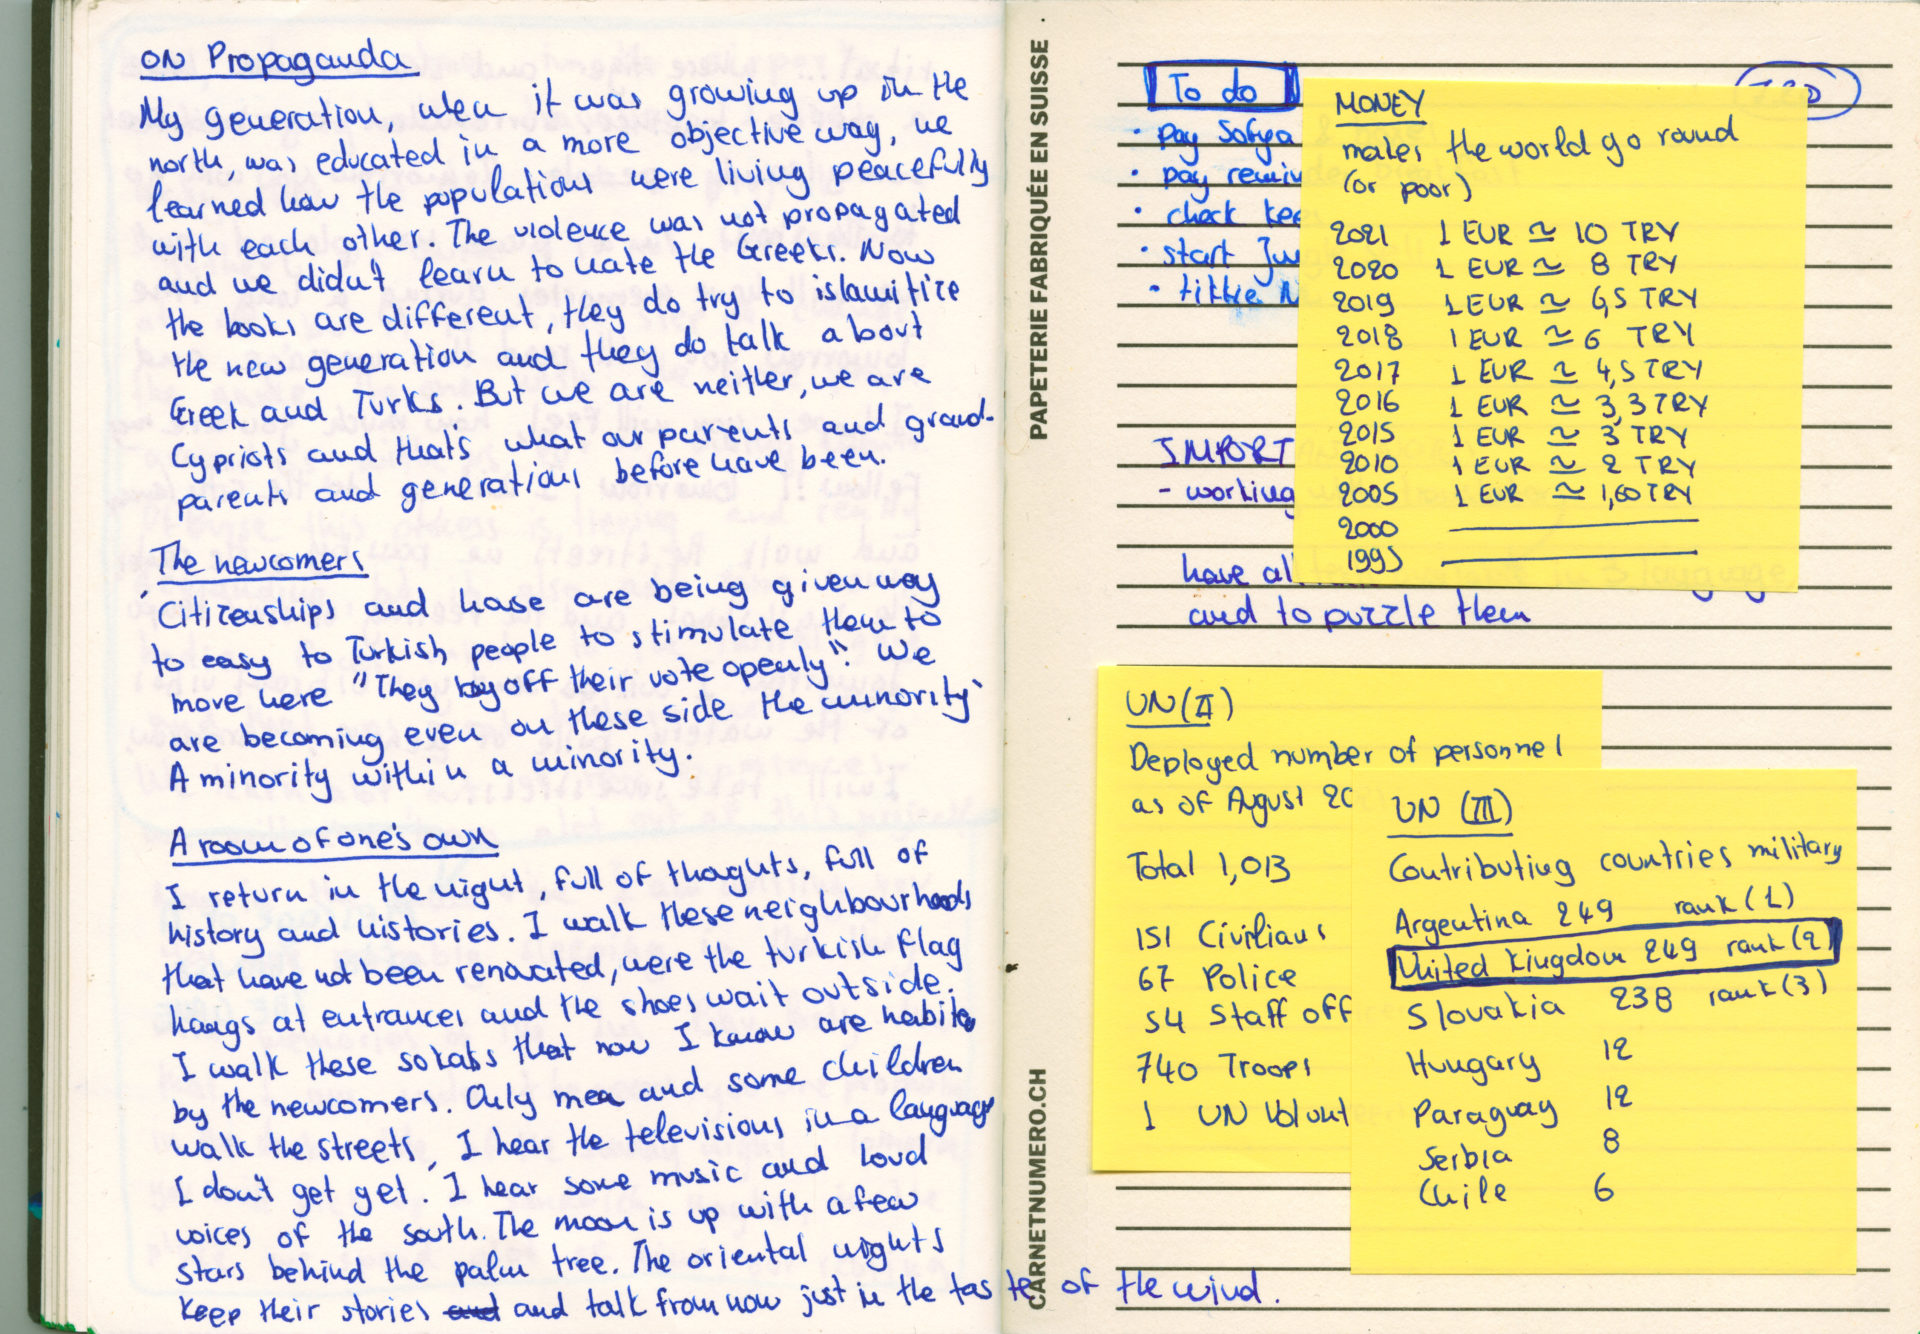 ON Propaganda
My generation, when it was growing up in the
north, was educated in a more objective way, we
learned how the populations were living peacefully
with each other. The violence was not propagated
and we didn't learn to hate the Greeks. Now
the books are different, they do try to islamitize
the new generation and they do talk about
Greek and Turks. But we are neither, we are
Cypriots and that's what our parents and grand-
parents and generations before have been.
The newcomers
'Citizenships and house are being given way
to easy to Turkish people to stimulate them to
move here "They buy off their vote openly". We
are becoming even on these side the minority'
A minority within a minority.
A room of one's own
I return in the night, full of thoghts, full of
history and histories. I walk these neighbourhoods
that have not been renovated, were the turkish flag
hangs at entrances and the shoes wait outside.
I walk these sokaks that now I know are habited
by the newcomers. Only men and some children
walk the streets, I hear the televisions in a language
I don't get yet. I hear some music and loud
voices of the south. The moon is up with a few
stars behind the palm tree. The oriental nights
keep their stories and and talk from now just in the taste of the wind.
PAPETERIE FABRIQUÉE EN SUISSE
CARNETNUMERO.CH
To do
• pay Sofya
• pay
• check
• start
•
IMPORT
- working
have al
and to puzzle them
MONEY
makes the world go round
(or poor)
2021 1 EUR ≃ 10 TRY
2020 1 EUR ≃ 8 TRY
2019 1 EUR ≃ 6,5 TRY
2018 1 EUR ≃ 6 TRY
2017 1 EUR ≃ 4,5 TRY
2016 1 EUR ≃ 3,3 TRY
2015 1 EUR ≃ 3 TRY
2010 1 EUR ≃ 2 TRY
2005 1 EUR ≃ 1,60 TRY
2000
1995
UN (II)
Deployed number of personnel
as of August 20
Total 1,013
151 Civilians
67 Police
54 Staff off
740 Troops
1 UN Volunt
UN (III)
Contributing countries military
Argentina 249 rank (1)
United Kingdom 249 rank (2)
Slovakia 238 rank (3)
Hungary 12
Paraguay 12
Serbia 8
Chile 6